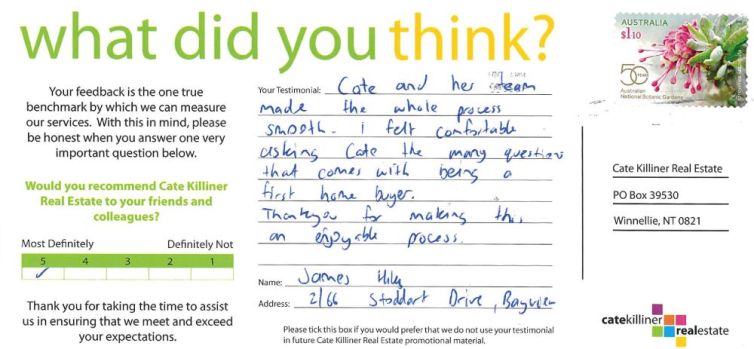 what did you think?
Your feedback is the one true
benchmark by which we can measure
our services. With this in mind, please
be honest when you answer one very
important question below.
Would you recommend Cate Killiner
Real Estate to your friends and
colleagues?
Most Definitely Definitely Not
5 4 3 2 1
Thank you for taking the time to assist
us in ensuring that we meet and exceed
your expectations.
Your Testimonial: Cate and her team
made the whole process
smooth. I felt comfortable
asking Cate the many questions
that comes with being a
first home buyer.
Thankyou for making this
an enjoyable process.
Name: James
Address: 2/66 Stoddart Drive, Bayview
Please tick this box if you would prefer that we do not use your testimonial
in future Cate Killiner Real Estate promotional material.
AUSTRALIA
$1.10
50 YEARS
Australian
National Botanic Gardens
Cate Killiner Real Estate
PO Box 39530
Winnellie, NT 0821
catekilliner
realestate